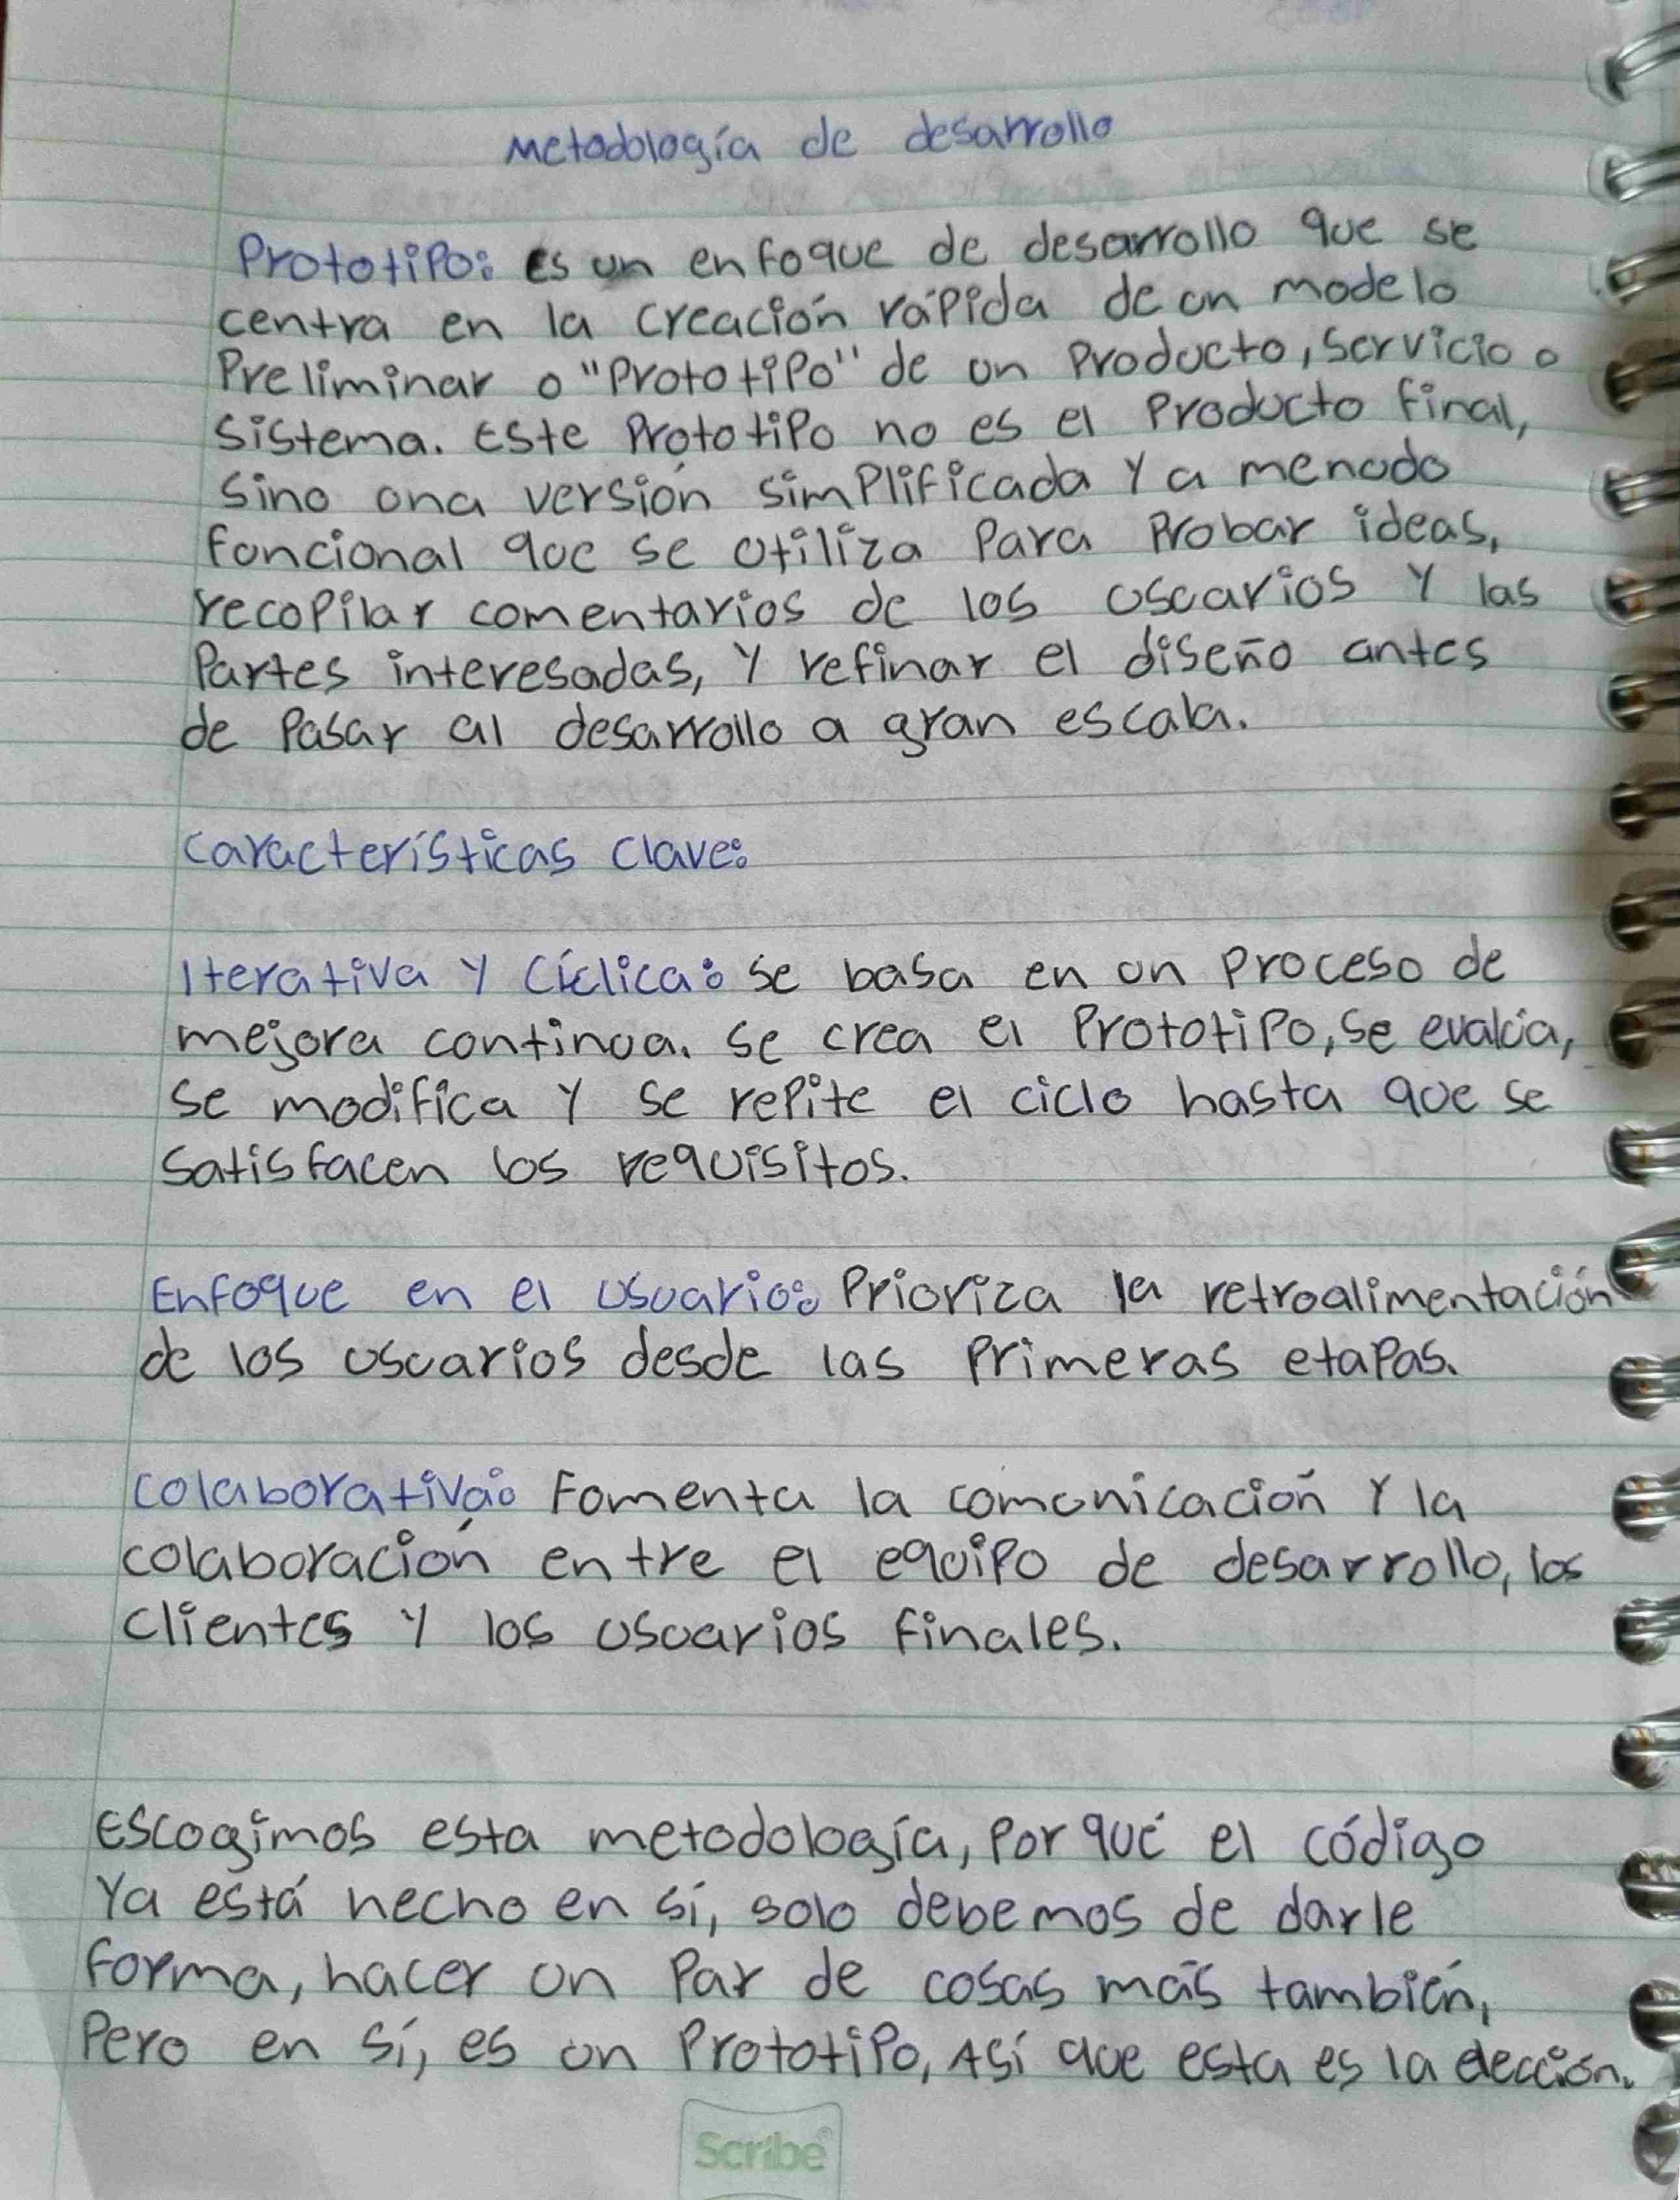 Metodología de desarrollo
Prototipo: Es un enfoque de desarrollo que se
centra en la creación rápida de un modelo
Preliminar o "Prototipo" de un Producto, Servicio o
Sistema. Este Prototipo no es el Producto final,
Sino una versión simplificada y a menudo
funcional que se utiliza Para Probar ideas,
recopilar comentarios de los usuarios y las
Partes interesadas, y refinar el diseño antes
de Pasar al desarrollo a gran escala.
Características clave:
Iterativa y Cíclica: Se basa en un Proceso de
mejora continua. Se crea el Prototipo, Se evalúa,
Se modifica y se repite el ciclo hasta que se
Satisfacen los requisitos.
Enfoque en el usuario: Prioriza la retroalimentación
de los usuarios desde las Primeras etapas.
Colaborativa: Fomenta la comunicación y la
colaboración entre el equipo de desarrollo, los
clientes y los usuarios finales.
Escogimos esta metodología, Por qué el código
Ya está hecho en sí, solo debemos de darle
forma, hacer un Par de cosas más también,
Pero en sí, es un Prototipo, Así que esta es la elección.
Scribe®